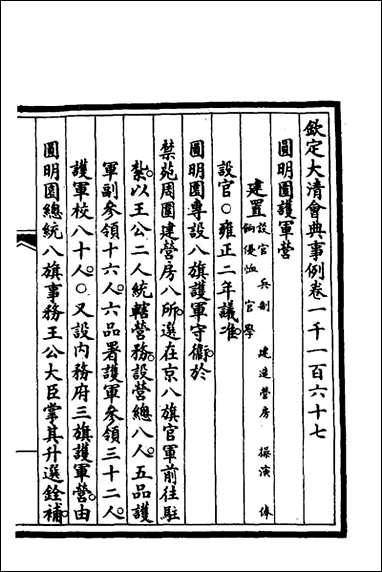 欽定大清會典事例卷一千一百六十七
圓明園護軍營
建置 設官 兵制 建造營房 操演 俸餉優恤 官學
設官○雍正二年議准
圓明園專設八旗護軍守衛於
禁苑周圍建營房八所選在京八旗官軍前往駐
紮以王公二人統轄營務設營總八人五品護
軍副參領十六人六品署護軍參領三十二人
護軍校八十人○又設內務府三旗護軍營由
圓明園總統八旗事務王公大臣掌其升選銓補